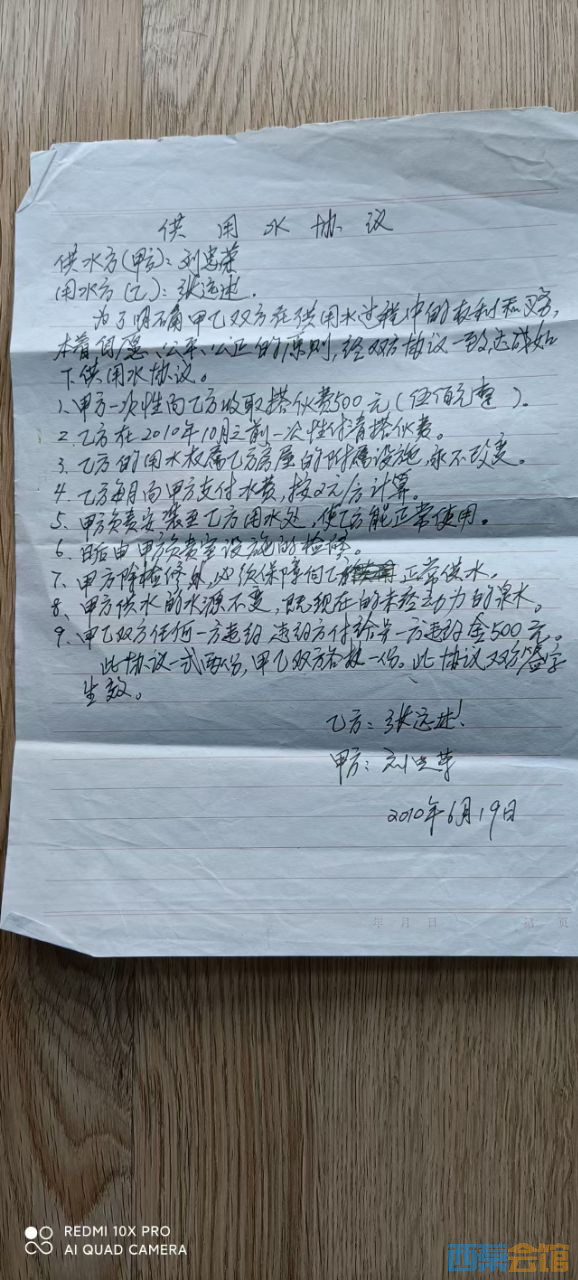 供用水协议
供水方(甲方)：刘忠荣
用水方(乙)：张远述.
为了明确甲乙双方在供用水过程中的权利和义务,
本着自愿、公平、公正的原则,经双方协议一致,达成如
下供用水协议。
1、甲方一次性向乙方收取搭伙费500元(伍佰元整)。
2、乙方在2010年10月之前一次性付清搭伙费。
3、乙方的用水权属乙方房屋的附属设施,永不改变。
4、乙方每月向甲方支付水费,按2元/方计算。
5、甲方负责安装至乙方用水处,使乙方能正常使用。
6、日后由甲方负责室设施的检修。
7、甲方除检修外,必须保障向乙方正常供水。
8、甲方供水的水源不变,既现在的未经动力的泉水。
9、甲乙双方任何一方违约 违约方付给另一方违约金500元。
此协议一式两份,甲乙双方各执一份。此协议双方签字
生效。
乙方：张远述
甲方：刘忠荣
2010年6月19日
年 月 日
页
REDMI 10X PRO
AI QUAD CAMERA
西祠会馆